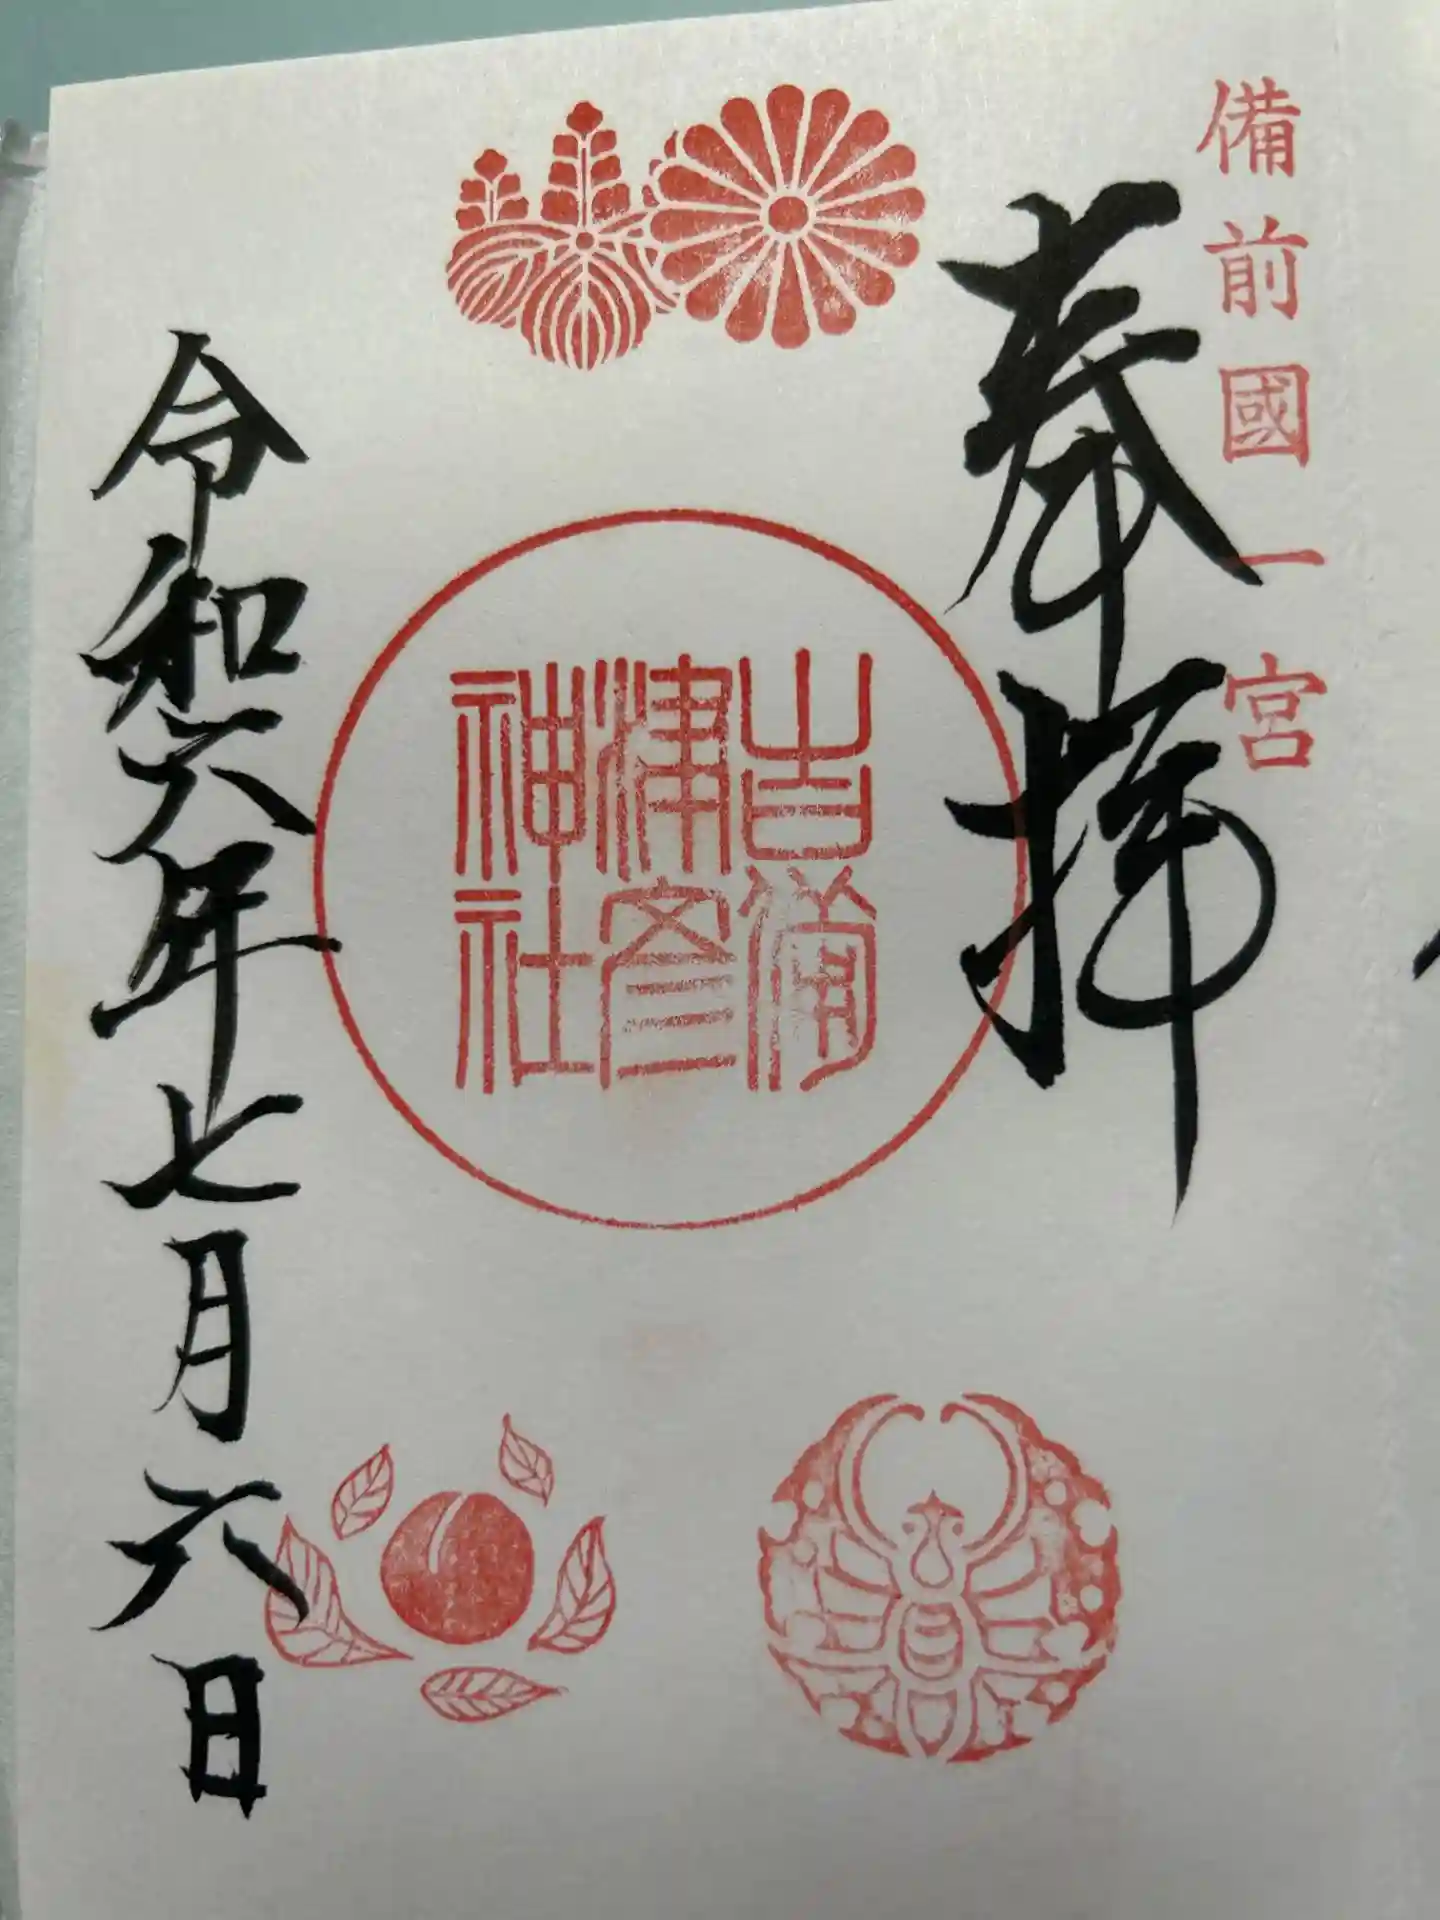 備前國一宮
奉拝
吉備
津彦
神社
令和六年七月六日